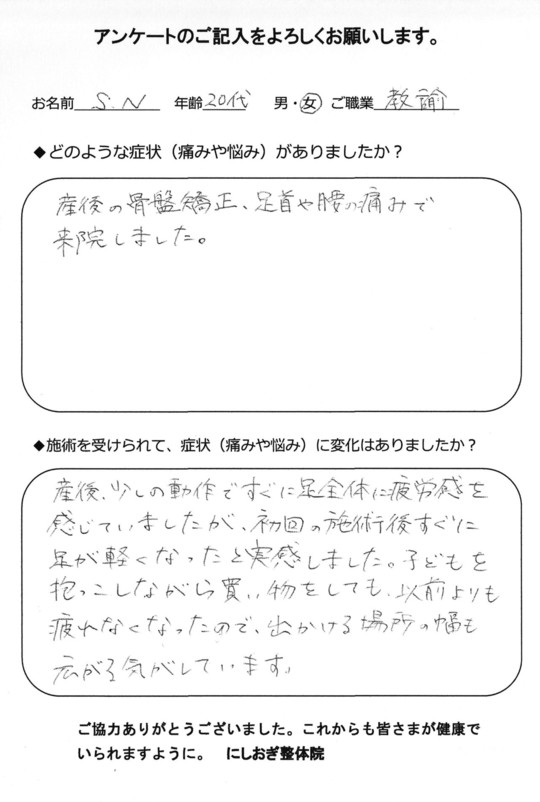 アンケートのご記入をよろしくお願いします。
お名前 S.N 年齢 20代 男・女 ご職業 教諭
◆どのような症状（痛みや悩み）がありましたか？
産後の骨盤矯正、足首や腰の痛みで
来院しました。
◆施術を受けられて、症状（痛みや悩み）に変化はありましたか？
産後、少しの動作ですぐに足全体に疲労感を
感じていましたが、初回の施術後すぐに
足が軽くなったと実感しました。子どもを
抱っこしながら買い物をしても、以前よりも
疲れなくなったので、出かける場所の幅も
広がる気がしています。
ご協力ありがとうございました。これからも皆さまが健康で
いられますように。 にしおぎ整体院